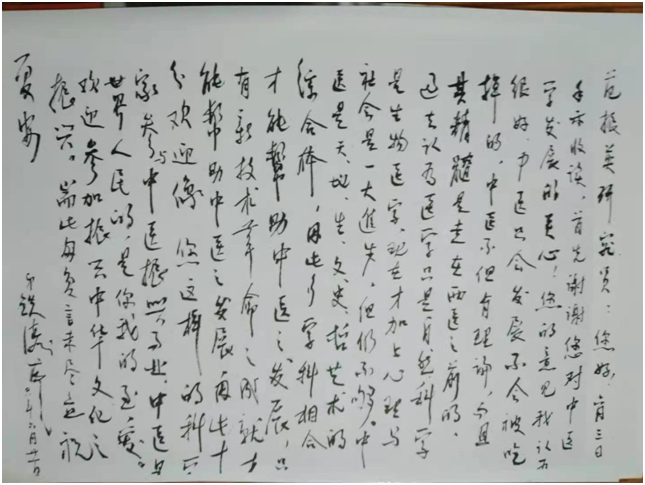 范振英研究员：您好。六月三日
手示收读，首先谢谢您对中医
学发展的关心！您的意见我认为
很好，中医只会发展不会被吃
掉的。中医不但有理论，而且
其精髓是走在西医之前的。
过去认为医学只是自然科学
是生物医学，现在才加上心理与
社会是一大进步，但仍不够。中
医是天、地、生、文、史、哲艺术的
综合体，因此多学科相合
才能帮助中医之发展，只
有新技术革命之成就才
能帮助中医之发展，因此十
分欢迎像您这样的科学
家参与中医振兴事业，中医是
世界人民的，是你我的至爱。
欢迎参加振兴中华文化之
振兴。耑此匆复言未尽意祝
夏安
邓铁涛
六月十一日